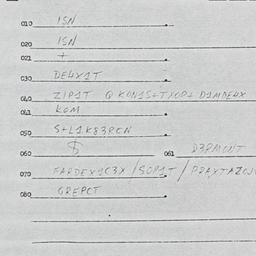 010 ISN
020 ISN
021 +
030 DE4X1T
040 ZIP1T Q KON1S+TXOP+ D1MDE4X
041 KOM
050 S+L1K83RCN
060 $ 061 D3PMONT
070 FARDEX1C3X / SOP1T /
080 GREPCT